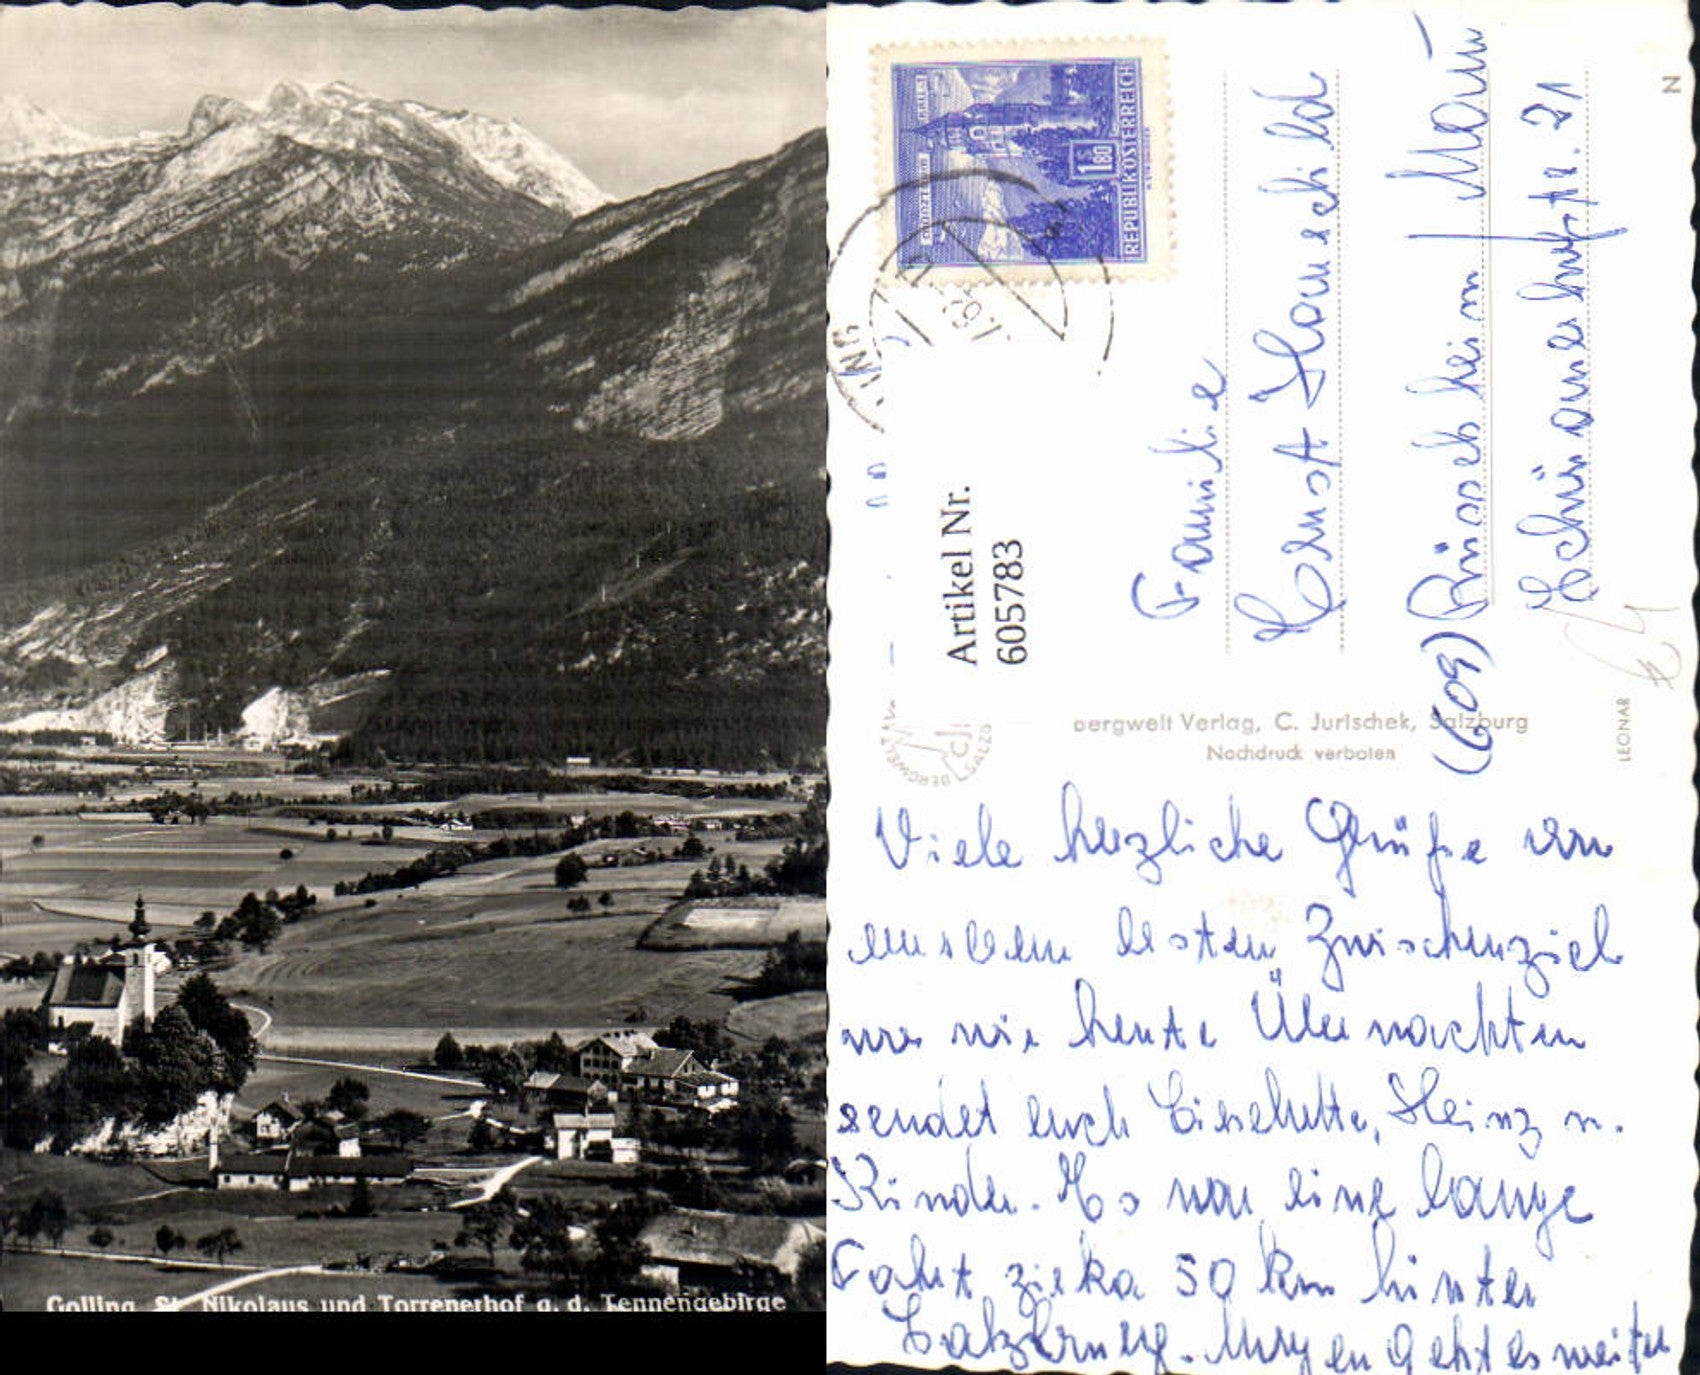 Golling, St. Nikolaus und Torrenerhof g. d. Tennengebirge
REPUBLIK ÖSTERREICH
1.80
Artikel Nr.
6057783
Familie
Ernst Hauschild
(609) Rüsselsheim / Main
N
LEONAR
Bergwelt Verlag, C. Jurischek, Salzburg
Nachdruck verboten
BERGWELT
CJ
SALZB
Viele herzliche Grüße von
unserem ersten Zwischenziel
wo wir heute Übernachten
sendet euch Lieselotte, Heinz u.
Kinder. Es war eine lange
Fahrt zirka 50 km hinter
Salzburg. Morgen geht es weiter